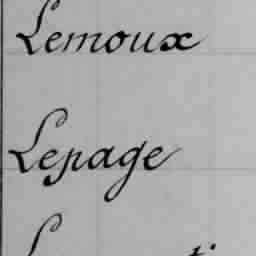 Lemoux
Lepage